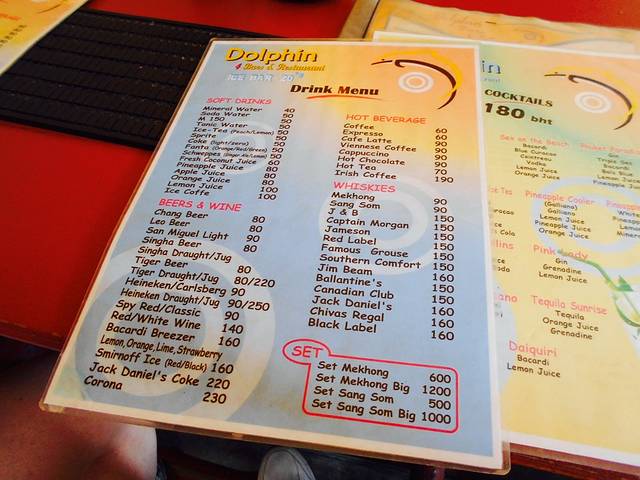 Dolphin
4 Bars & Restaurant
ICE BAR
Drink Menu
SOFT DRINKS
Mineral Water 40
Soda Water 50
M 150 50
Tonic Water 50
Ice-Tea (Peach/Lemon) 50
Sprite 50
Coke (light/zero) 50
Fanta (Orange/Red/Green) 50
Schweppes (Ginger Ale/Lemon) 50
Fresh Coconut Juice 60
Pineapple Juice 80
Apple Juice 80
Orange Juice 80
Lemon Juice 100
Ice Coffe 100
BEERS & WINE
Chang Beer 80
Leo Beer 80
San Miguel Light 90
Singha Beer 80
Singha Draught/Jug
Tiger Beer 80
Tiger Draught/Jug 80/220
Heineken/Carlsberg 90
Heineken Draught/Jug 90/250
Spy Red/Classic 90
Red/White Wine 140
Bacardi Breezer 160
Lemon, Orange, Lime, Strawberry
Smirnoff Ice (Red/Black) 160
Jack Daniel's Coke 220
Corona 230
HOT BEVERAGE
Coffee 60
Expresso 60
Cafe Latte 90
Viennese Coffee 90
Cappuccino 90
Hot Chocolate 90
Hot Tea 70
Irish Coffee 190
WHISKIES
Mekhong 90
Sang Som 90
J & B 150
Captain Morgan 150
Jameson 150
Red Label 150
Famous Grouse 150
Southern Comfort 150
Jim Beam 160
Ballantine's 150
Canadian Club 150
Jack Daniel's 160
Chivas Regal 160
Black Label 160
SET
Set Mekhong 600
Set Mekhong Big 1200
Set Sang Som 500
Set Sang Som Big 1000
in
COCKTAILS
180 bht
Sex on the Beach
Bacardi
Blue Curacao
Vodka
Lemon Juice
Orange Juice
Phuket Paradi
Gin
Triple Sec
Bacardi
Lemon Juice
Pineapple Ju
Pineapple Cooler
(Galliano)
Galliano
Lemon Juice
Pineapple Juice
Orange Juice
Pink Lady
Gin
Grenadine
Lemon Juice
Tequila Sunrise
Tequila
Orange Juice
Grenadine
Daiquiri
Bacardi
Lemon Juice